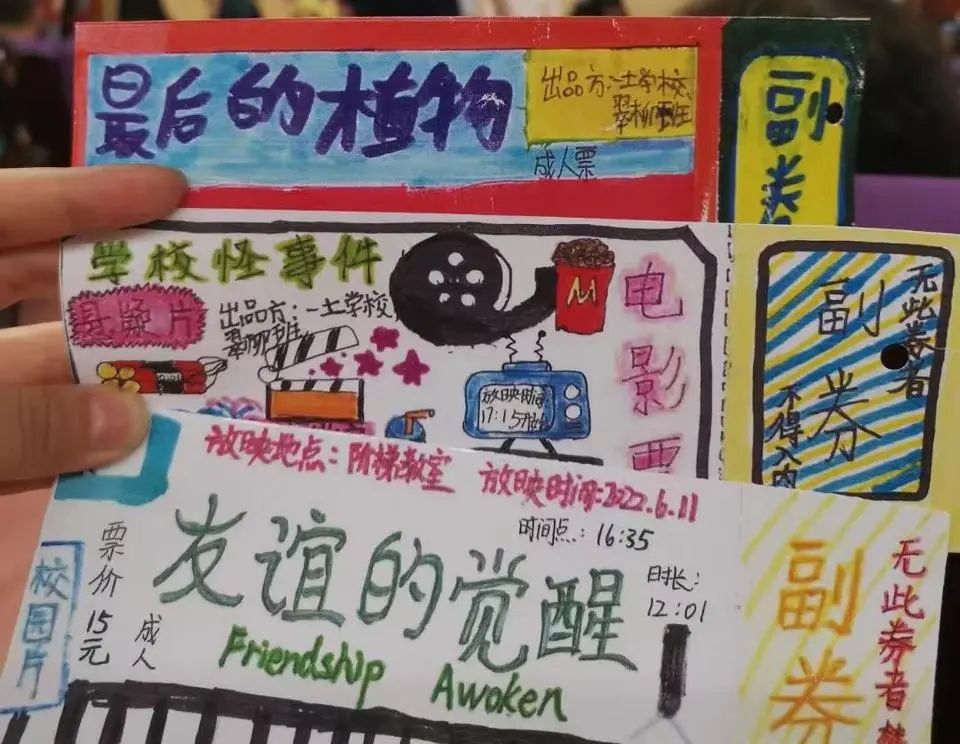 最后的植物
出品方:一土学校
翠柳班
成人票
副券
学校怪事件
悬疑片
出品方:一土学校
翠柳班
M
放映时间
17:15开始
电影票
副券
无此券者
不得入内
放映地点:阶梯教室 放映时间:2022.6.11
时间点:16:35
友谊的觉醒
日长:
12:01
Friendship Awoken
票价15元
成人
校园片
副券
无此券者